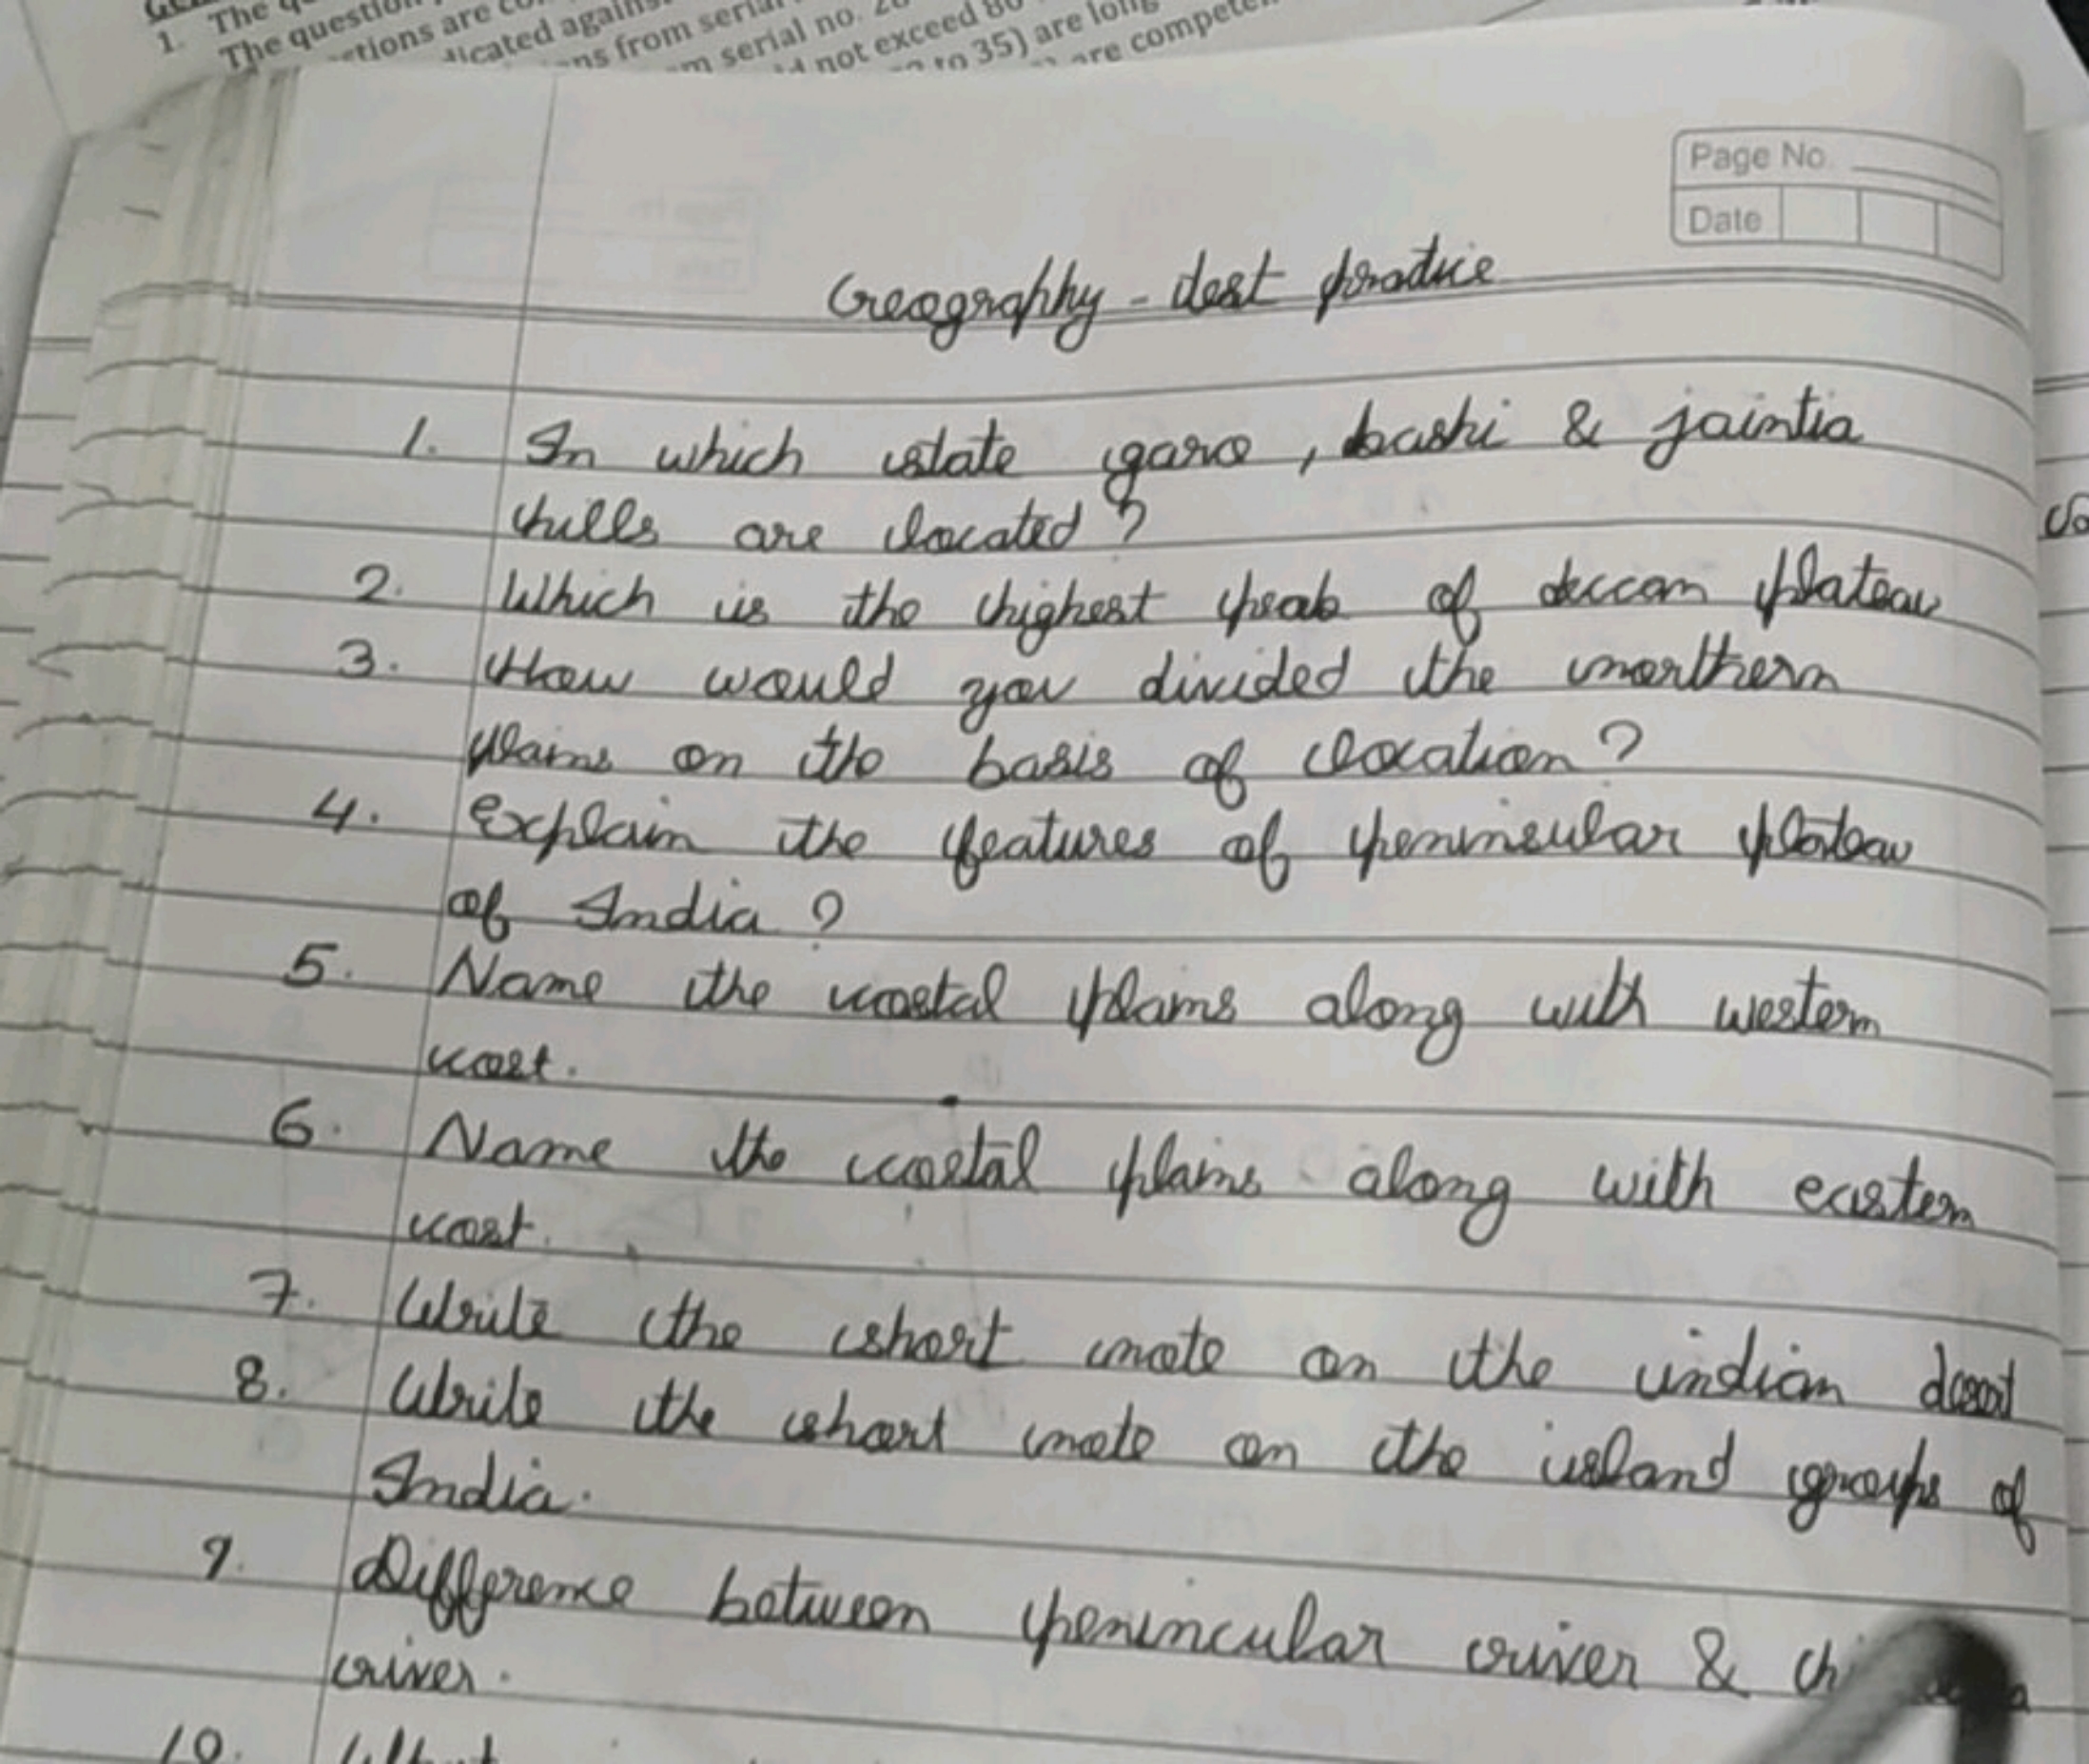 1. The
The question
ctions are
dicated against
ns from serial
m serial no. 20
not exceed 80
to 35) are long
are compete
Page No.
Date
Geography - test practice
1. In which state garo, kashi & jaintia
hills are located?
2. Which is the highest peak of deccan plateau
3. How would you divided the northern
plains on the basis of location?
4. Explain the features of peninsular plateau
of India?
5. Name the coastal plains along with western
cost.
6. Name the coastal plains along with eastern
cost.
7. Write the short note on the indian desert
8. Write the short note on the island groups of
India.
9. Difference between penincular river &
river.
10. What